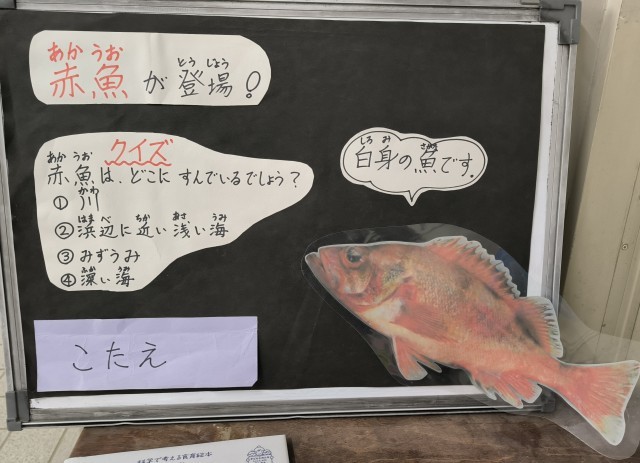 あか うお
赤魚が
とう じょう
登場!
クイズ
あか うお
赤魚は、どこに すんでいるでしょう?
かわ
① 川
はま べ ちか あさ うみ
② 浜辺に近い 浅い海
③ みずうみ
ふか うみ
④ 深い 海
しろ み さかな
白身の魚です。
こたえ
科学で考える食育絵本